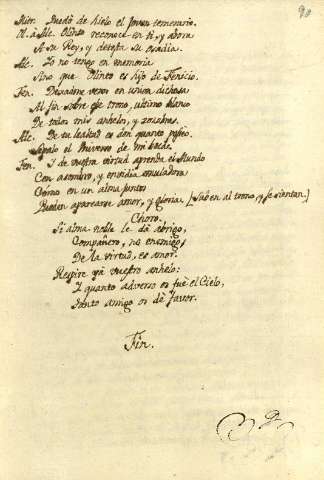 90
Licor. Quedó de hielo el Joven temerario.
Ol. a Alc. Olinto reconoce en ti, y adora
A su Rey, y detesta su osadia.
Alc. Io no tengo en memoria
Sino que Olinto es hijo de Fenicio.
Fen. Dexadme veros en union dichosa
Al fin sobre ese trono, ultimo blanco
De todos mis anhelos, y zozobras.
Alc. De tu lealtad es don quanto poseo.
Sepalo el Universo de mi boca.
Fen. I de vuestra virtud aprenda el Mundo
Con asombro, y envidia emuladora
Como en un alma juntos
Pueden aparearse amor, y gloria. [Suben al trono, y se sientan.]
Choro.
Si alma noble le dá abrigo,
Compañero, no enemigo,
De la virtud, es amor.
Respire yá vuestro anhelo:
I quanto adverso os fue el Cielo,
Tanto amigo os dé favor.
Fin.